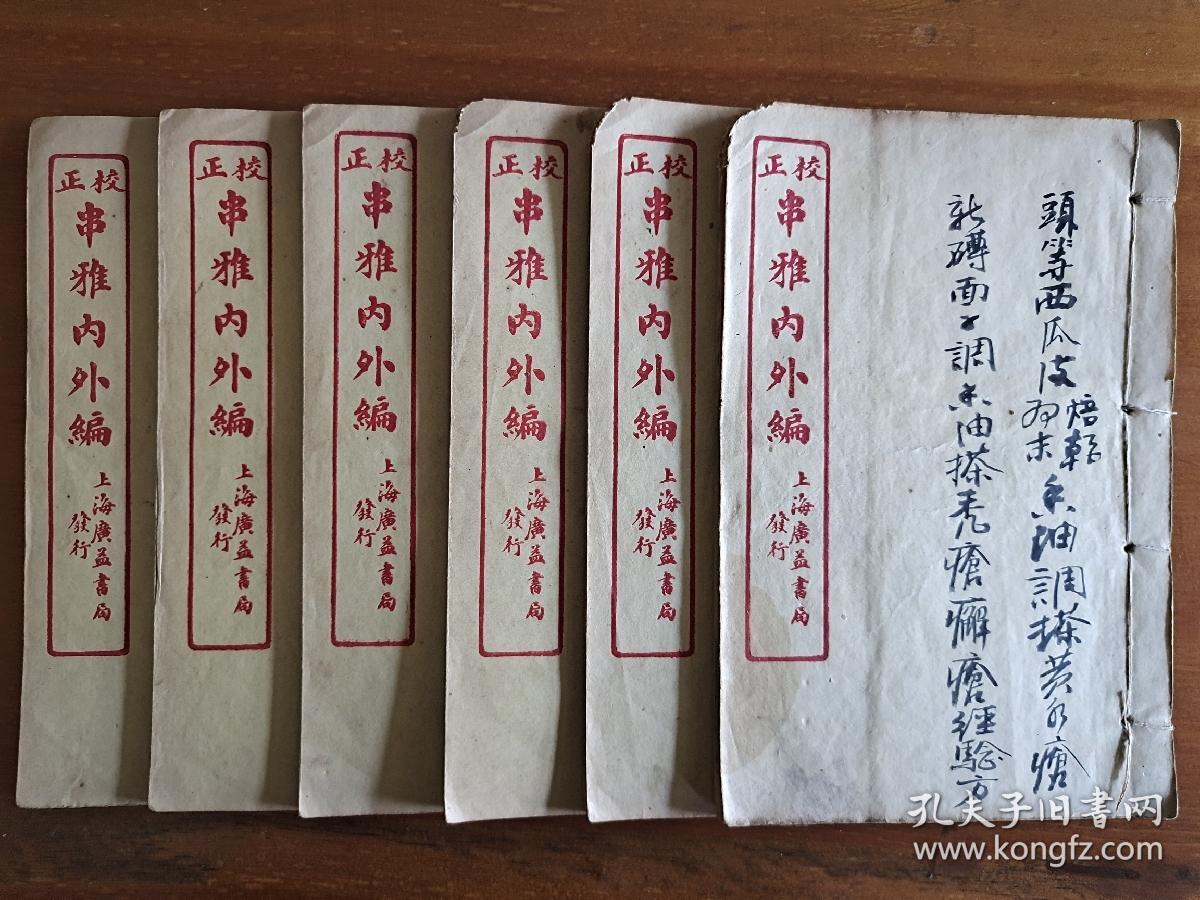 頭等西瓜皮焙乾为末香油調搽黃水瘡
新磚面子調香油搽禿瘡癬瘡經驗方
校正
串雅內外編
上海廣益書局
發行
校正
串雅內外編
上海廣益書局
發行
校正
串雅內外編
上海廣益書局
發行
校正
串雅內外編
上海廣益書局
發行
校正
串雅內外編
上海廣益書局
發行
校正
串雅內外編
上海廣益書局
發行
孔夫子旧书网
www.kongfz.com